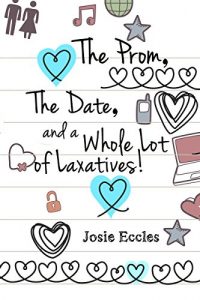 The Prom,
The Date,
and a Whole Lot
of Laxatives!
Josie Eccles